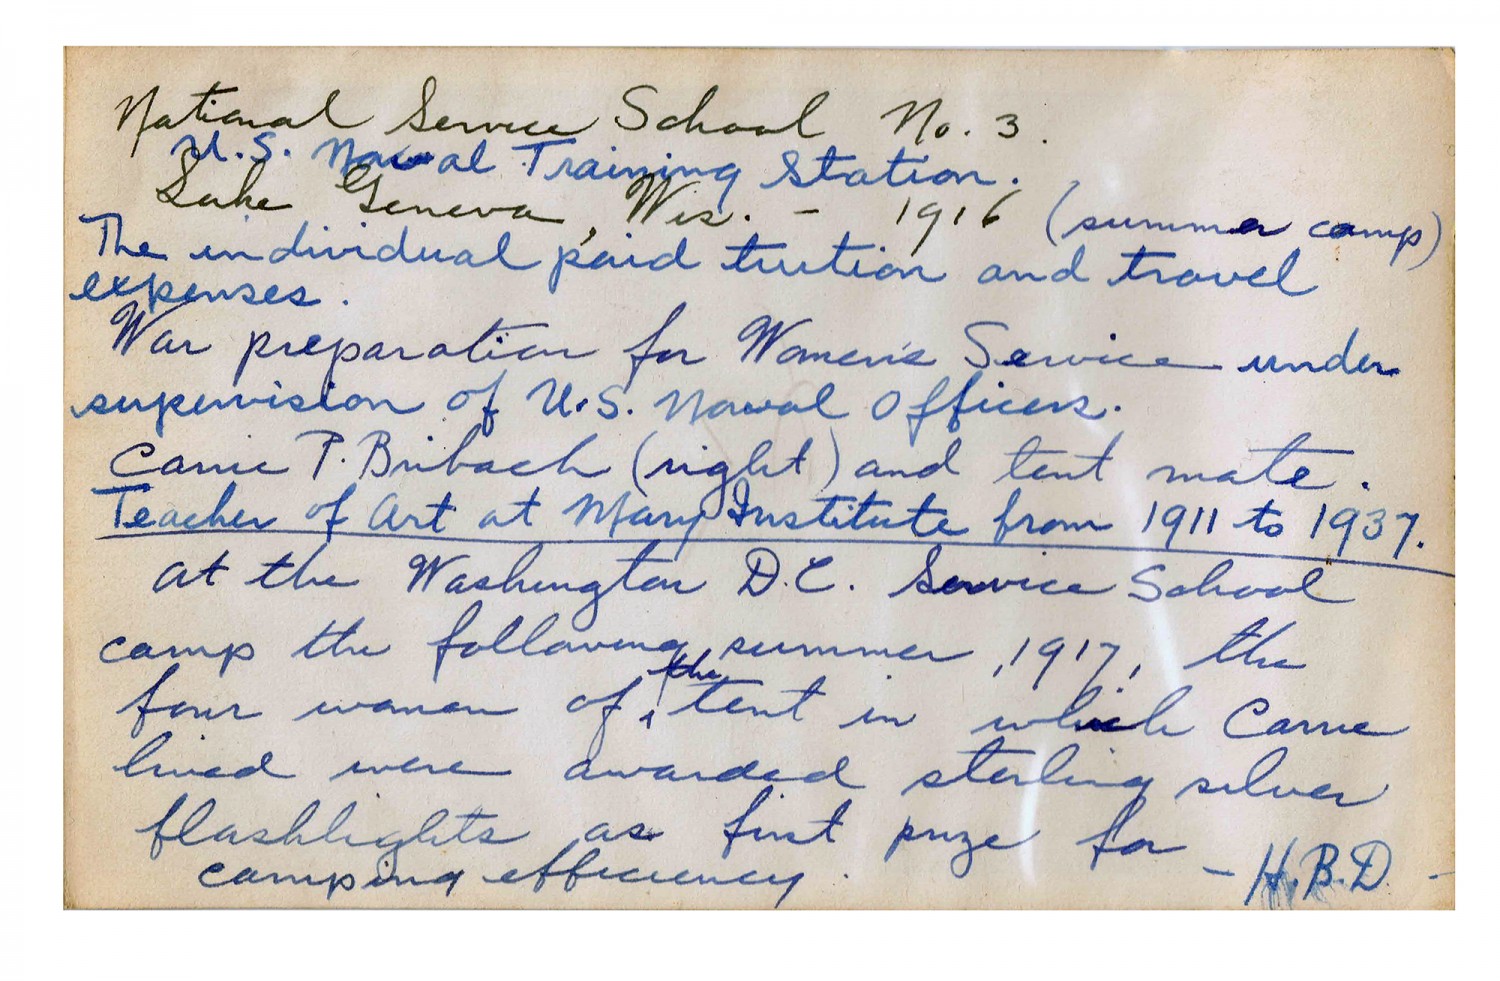 National Service School No. 3.
U.S. Naval Training Station.
Lake Geneva, Wis. - 1916 (summer camp)
The individual paid tuition and travel
expenses.
War preparation for Women's Service under
supervision of U.S. Naval Officers.
Carrie P. Bribach (right) and tent mate.
Teacher of Art at Mary Institute from 1911 to 1937.
at the Washington D.C. Service School
camp the following summer, 1917, the
four women of the tent in which Carrie
lived were awarded sterling silver
flashlights as first prize for
camping efficiency. - H.B.D. -